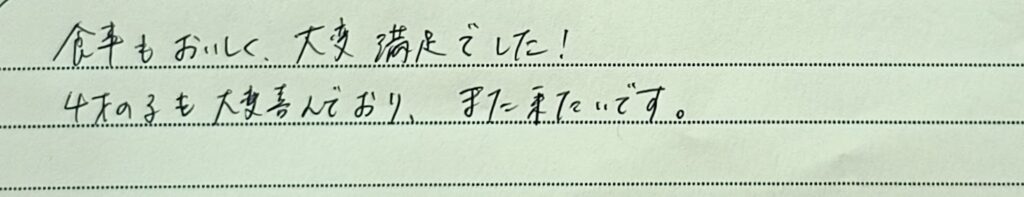 食事もおいしく、大変満足でした!
4才の子も大変喜んでおり、また来たいです。